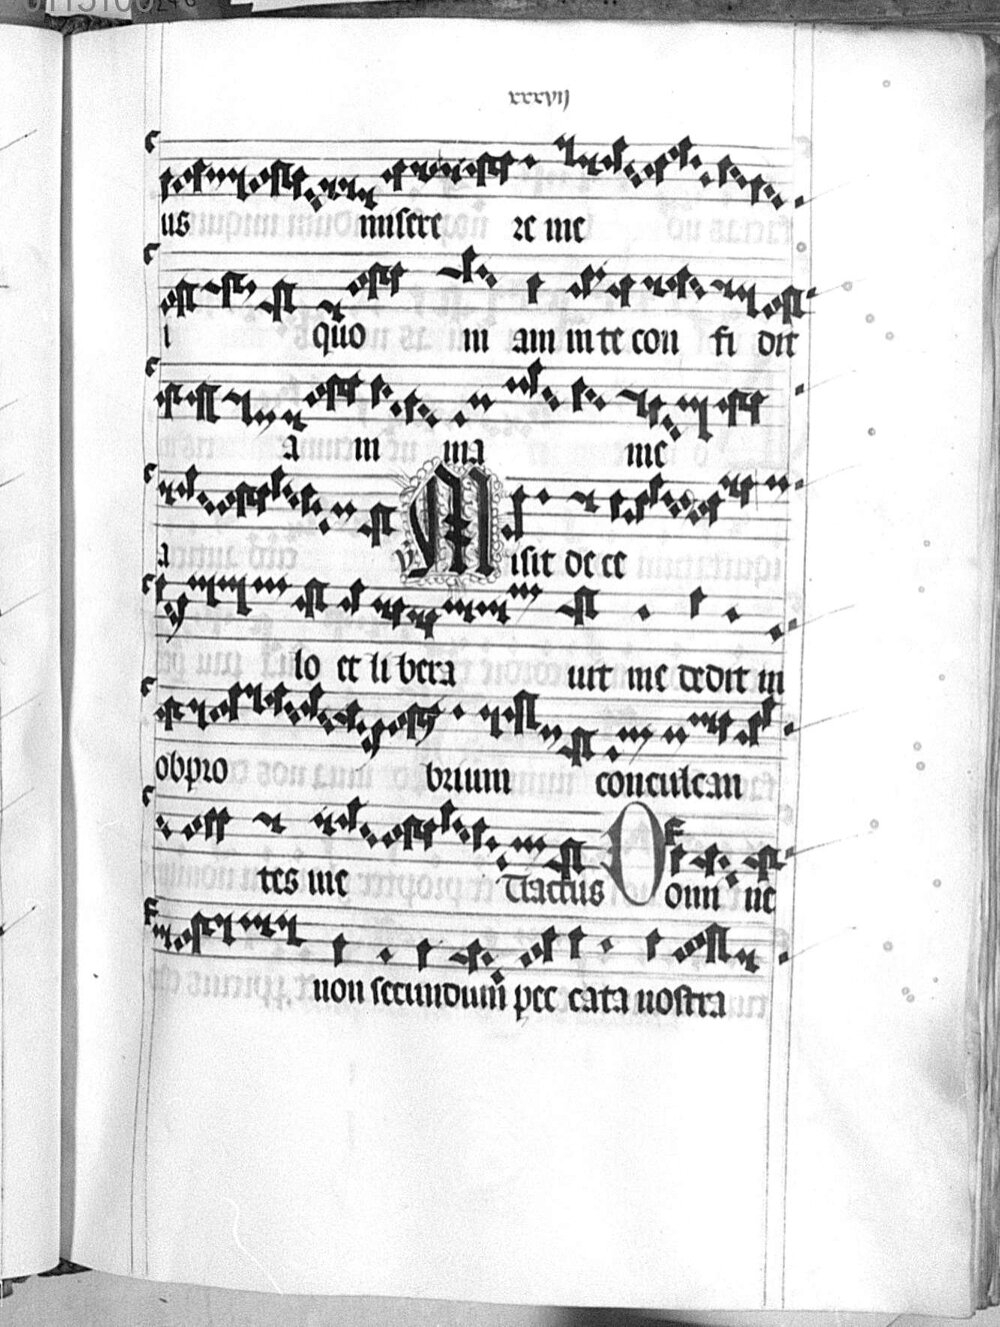 xxxvij
us misere re me
i quo ni am in te con fi dit
a ni ma me
a V Misit de ce
lo et li bera uit me dedit in
obpro brium conculcan
tes me Tractus Domi ne
non secundum pec cata nostra